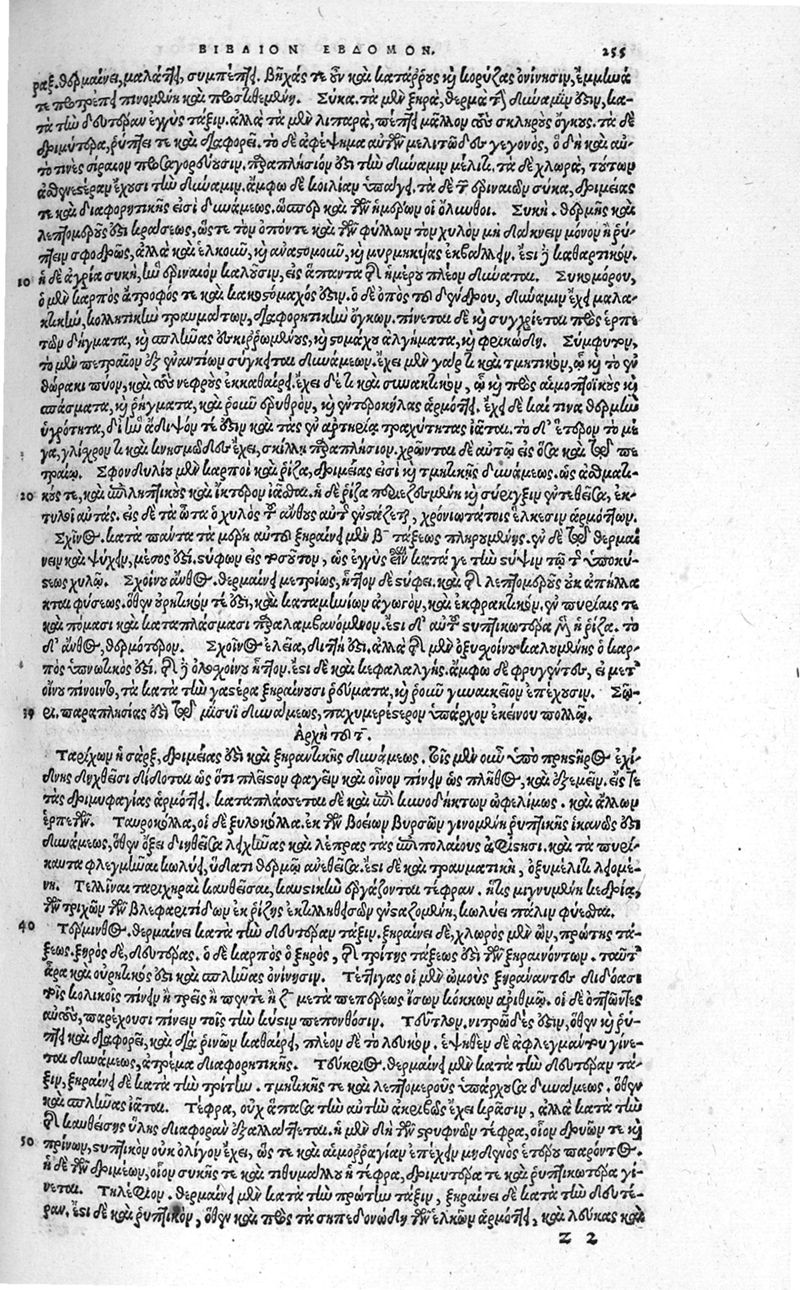 ΒΙΒΛΙΟΝ ΕΒΔΟΜΟΝ. 255
ραξ. θερμαίνει, μαλάττει, συμπέττει. βῆχάς τε οὖν καὶ κατάῤῥους καὶ κορύζας ὀνίνησιν, ἔμμηνά
τε προτρέπει πινομένη καὶ προστιθεμένη. Σύκα. τὰ μὲν ξηρὰ, θερμά τὴν δύναμίν ἐστιν, κα-
τὰ τὴν δευτέραν ἐγγύς τάξιν. ἀλλὰ τὰ μὲν λιπαρὰ, πέττει μᾶλλον τοὺς σκληροὺς ὄγκους. τὰ δὲ
δριμύτερα, ῥύπτει τε καὶ διαφορεῖ. τὸ δὲ ἀφέψημα αὐτῶν μελιτῶδες γεγονὸς, ὃ δὴ καὶ αὐ-
τό τινες σίραιον προσαγορεύουσιν, παραπλήσιόν ἐστι τὴν δύναμιν μέλιτι. τὰ δὲ χλωρὰ, τούτων
ἀσθενεστέραν ἔχουσι τὴν δύναμιν. ἄμφω δὲ κοιλίαν ὑπάγει. τὰ δὲ τῶν ἐρινεῶν σύκα, δριμείας
τε καὶ διαφορητικῆς εἰσὶ δυνάμεως. ὥσπερ καὶ τῶν ἡμέρων οἱ ὄλυνθοι. Συκῆ. θερμῆς καὶ
λεπτομεροῦς ἐστὶ κράσεως, ὥς τε τὸν ὀπόν τε καὶ τῶν φύλλων τὸν χυλὸν μὴ δάκνειν μόνον ἢ ῥύ-
πτειν σφοδρῶς, ἀλλὰ καὶ ἑλκοῦν, καὶ ἀναστομοῦν, καὶ μυρμηκίας ἐκβάλλειν. ἔστι δὲ καθαρτικόν.
10 ἡ δὲ ἀγρία συκῆ, ἣν ἐρινεὸν καλοῦσιν, εἰς ἅπαντα τῆς ἡμέρου πλέον δύναται. Συκομόρου,
ὁ μὲν καρπὸς ἄτροφός τε καὶ κακοστόμαχός ἐστιν. ὁ δὲ ὀπὸς τοῦ δένδρου, δύναμιν ἔχει μαλα-
κτικὴν, κολλητικὴν τραυμάτων, διαφορητικὴν ὄγκων. πίνεται δὲ καὶ συγχρίεται πρὸς ἑρπε-
τῶν δήγματα, καὶ σπλῆνας ἐσκιῤῥωμένους, καὶ στομάχου ἀλγήματα, καὶ φρικώδη. Σύμφυτον,
τὸ μὲν πετραῖον ἐξ ἐναντίων σύγκειται δυνάμεων. ἔχει μὲν γάρ τι καὶ τμητικὸν, ᾧ καὶ τὸ ἐν
θώρακι πύον, καὶ τοὺς νεφροὺς ἐκκαθαίρει. ἔχει δέ τι καὶ συνακτικὸν, ᾧ καὶ πρὸς αἱμοπτοϊκοὺς καὶ
σπάσματα, καὶ ῥήγματα, καὶ ῥοῦν ἐρυθρὸν, καὶ ἐντεροκήλας ἁρμόττει. ἔχει δὲ καί τινα θερμὴν
ὑγρότητα, δι᾽ ἣν ἄδιψόν τέ ἐστιν καὶ τὰς ἐν ἀρτηρίᾳ τραχύτητας ἰᾶται. τὸ δ᾽ ἕτερον τὸ μέ-
γα, γλίσχρον τι καὶ κνησμῶδες ἔχει, σκίλλῃ παραπλήσιον. χρῶνται δὲ αὐτῷ εἰς ὅσα καὶ τῷ πε-
τραίῳ. Σφονδυλίου μὲν καρποὶ καὶ ῥίζα, δριμείας εἰσὶ καὶ τμητικῆς δυνάμεως. ὡς ἀσθματι-
20 κούς τε, καὶ ἐπιληπτικοὺς καὶ ἴκτερον ἰᾶσθαι. ἡ δὲ ῥίζα περιεζυσμένη καὶ σύριγξιν ἐντεθεῖσα, ἐκ-
τυλοῖ αὐτάς. εἰς δὲ τὰ ὦτα ὁ χυλὸς τοῦ ἄνθους αὐτοῦ ἐνστάζεται, χρόνιω τὰ τοῖς ἕλκεσιν ἁρμόττων.
Σχῖνος. κατὰ πάντα τὰ μόρη αὐτοῦ ξηραίνει μὲν β᾽ τάξεως πληρουμένης. ἐν δὲ τῷ θερμαί
νειν καὶ ψύχειν, μέσος ἐστὶ. στύφων εἰς τοσοῦτον, ὡς ἐγγὺς εἶναι κατά γε τὴν στύψιν τῷ τῆς ὑποκύ-
στεως χυλῷ. Σχοίνου ἄνθος. θερμαίνει μετρίως, ἧττον δὲ στύφει. καὶ τῆς λεπτομεροῦς οὐκ ἀπήλλα
κται φύσεως. ὅθεν οὐρητικόν τέ ἐστι, καὶ καταμηνίων ἀγωγὸν, καὶ ἐκφρακτικὸν. ἐν πυρίαις τε
καὶ πόμασι καὶ καταπλάσμασι παραλαμβανόμενον. ἔστι δ᾽ αὐτοῦ στυπτικωτέρα μὲν ἡ ῥίζα. τὸ
δ᾽ ἄνθος, θερμότερον. Σχοῖνος ἑλεία, διττή ἐστι. ἀλλὰ τῆς μὲν ὀξυσχοίνου καλουμένης ὁ καρ-
πὸς ὑπνωτικός ἐστι. τῆς δὲ ὁλοσχοίνου ἧττον. ἔστι δὲ καὶ κεφαλαλγής. ἄμφω δὲ φρυγέντες, εἰ μετ᾽
οἴνου πίνοιντο, τὰ κατὰ τὴν γαστέρα ξηραίνουσι ῥεύματα, καὶ ῥοῦν γυναικεῖον ἐπέχουσιν. Σῶ-
30 ρι. παραπλησίας ἐστὶ τῷ μίσυϊ δυνάμεως, παχυμερέστερον ὑπάρχον ἐκείνου πολλῷ.
Ἀρχὴ τοῦ τ.
Ταρίχων ἡ σὰρξ, δριμείας ἐστὶ καὶ ξηραντικῆς δυνάμεως. τοῖς μὲν οὖν ὑπὸ πρηστῆρος ἐχί-
δνης δηχθεῖσι δίδοται ὡς ὅτι πλεῖστον φαγεῖν καὶ οἶνον πίνειν ὡς πλῆθος, καὶ ἐξεμεῖν. εἴς τε
τὰς δριμυφαγίας ἁρμόττει. καταπλάσσεται δὲ καὶ ἐπὶ κυνοδήκτων ὠφελίμως. καὶ ἄλλων
ἑρπετῶν. Ταυροκόλλα, οἱ δὲ ξυλοκόλλα. ἐκ τῶν βοείων βυρσῶν γινομένη ῥυπτικῆς ἱκανῶς ἐστὶ
δυνάμεως, ὅθεν ὄξει διηθεῖσα λειχῆνας καὶ λέπρας τὰς ἐπιπολαίους ἀφίησι. καὶ τὰ πυρί-
καυτα φλεγμῆναι κωλύει, ὕδατι θερμῷ ἀνεθεῖσα. ἔστι δὲ καὶ τραυματικὴ, ὀξυμέλιτι λειομέ-
νη. Τελλῖναι ταριχηραὶ καυθεῖσαι, καυστικὴν ἐργάζονται τέφραν. ἥτις μιγνυμένη κεδρίᾳ,
τῶν τριχῶν τῶν βλεφαρίτιδων ἐκ ῥίζης ἐκτιλληθεισῶν ἐνσταζομένη, κωλύει πάλιν φύεσθαι.
40 Τέρμινθος. θερμαίνει κατὰ τὴν δευτέραν τάξιν. ξηραίνει δὲ, χλωρὸς μὲν ὢν, πρώτης τά-
ξεως. ξηρὸς δὲ, δευτέρας. ὁ δὲ καρπὸς ὁ ξηρὸς, τῆς τρίτης τάξεώς ἐστι τῶν ξηραινόντων. ταῦτ᾽
ἄρα καὶ οὐρητικός ἐστι καὶ σπλῆνας ὀνίνησιν. Τέττιγας οἱ μὲν ὠμοὺς ξηράναντες διδόασι
τοῖς κολικοῖς πίνειν ἢ τρεῖς ἢ πέντε ἢ ζ᾽ μετὰ πεπέρεως ἴσων κόκκων ἀριθμῷ. οἱ δὲ ὀπτῶντες
αὐτοὺς, παρέχουσι πίνειν τοῖς τὴν κύστιν πεπονθόσιν. Τεῦτλον. νιτρῶδές ἐστιν, ὅθεν καὶ ῥύ-
πτει καὶ διαφορεῖ, καὶ διὰ ῥινῶν καθαίρει, πλέον δὲ τὸ λευκόν. ἑψηθὲν δὲ ἀφλέγμαντον γίνε-
ται δυνάμεως, ἀτρέμα διαφορητικῆς. Τεύκριος. θερμαίνει μὲν κατὰ τὴν δευτέραν τά-
ξιν, ξηραίνει δὲ κατὰ τὴν τρίτην. τμητικῆς τε καὶ λεπτομεροῦς ὑπάρχουσα δυνάμεως. ὅθεν
καὶ σπλῆνας ἰᾶται. Τέφρα, οὐχ ἅπασα τὴν αὐτὴν ἀκριβῶς ἔχει κρᾶσιν, ἀλλὰ κατὰ τὴν
τῆς καυθείσης ὕλης διαφορὰν ἐξαλλάττεται. ἡ μὲν δὴ τῶν στρυφνῶν τέφρα, οἷον δρυῶν τε καὶ
50 πρίνων, στυπτικὸν οὐκ ὀλίγον ἔχει, ὥς τε καὶ αἱμοῤῥαγίαν ἐπέχειν μηδενὸς ἑτέρου παρόντος.
ἡ δὲ τῶν δριμέων, οἷον συκῆς τε καὶ τιθυμάλλου ἡ τέφρα, δριμυτέρα τε καὶ ῥυπτικωτέρα γί-
νεται. Τηλέφιον. θερμαίνει μὲν κατὰ τὴν πρώτην τάξιν, ξηραίνει δὲ κατὰ τὴν δευτέ-
ραν. ἔστι δὲ καὶ ῥυπτικὸν, ὅθεν καὶ πρὸς τὰ σηπεδονώδη τῶν ἑλκῶν ἁρμόττει, καὶ λεύκας καὶ
Z 2